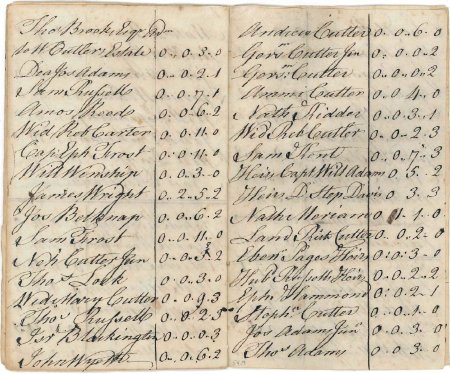 Thos Brooks Esqr
to W Cutlers Estate 0..0..3..0
Deaⁿ Jos Adams 0..0..2..1
Sam Russell 0..0..7..1
Amos Read 0..0..6..2
Wid Reb Carter 0..0..11..0
Cap Eph Frost 0..0..11..0
Will Winship 0..0..3..0
James Wright 0..2..5..2
Jos Belknap 0..0..6..2
Sam Frost 0..0..11..0
Neh Cutter Jun
Thos Lock 0..0..3..0
Wid Mary Cutter 0..0..9..3
Thos Russell 0..0..2..5
Jsr Blackington 0..0..0..3
John Wyeth 0..0..6..2
Andrew Cutter 0..0..6..0
Gersm Cutter Jun 0..0..0..2
Gersm Cutter 0..0..0..2
Ammi Cutter 0..0..4..0
Nath Kidder 0..0..3..1
Wid Reb Cutter 0..0..2..3
Sam Kent 0..0..7..3
Heirs Capt Will Adam 0..5..2
Heirs D Step Davis 0..3..3
Nathl 0..11..1..0
Land Rich Cutter 0..0..2..0
Eben Pages Heirs 0:0..3..0
Hub Russell Heirs 0..0..2..2
Eph Hammond 0:0..2..1
Steph Cutter 0..0..1..0
Jos Adams Junr 0..0..3..0
Thos Adams 0..0..3..0